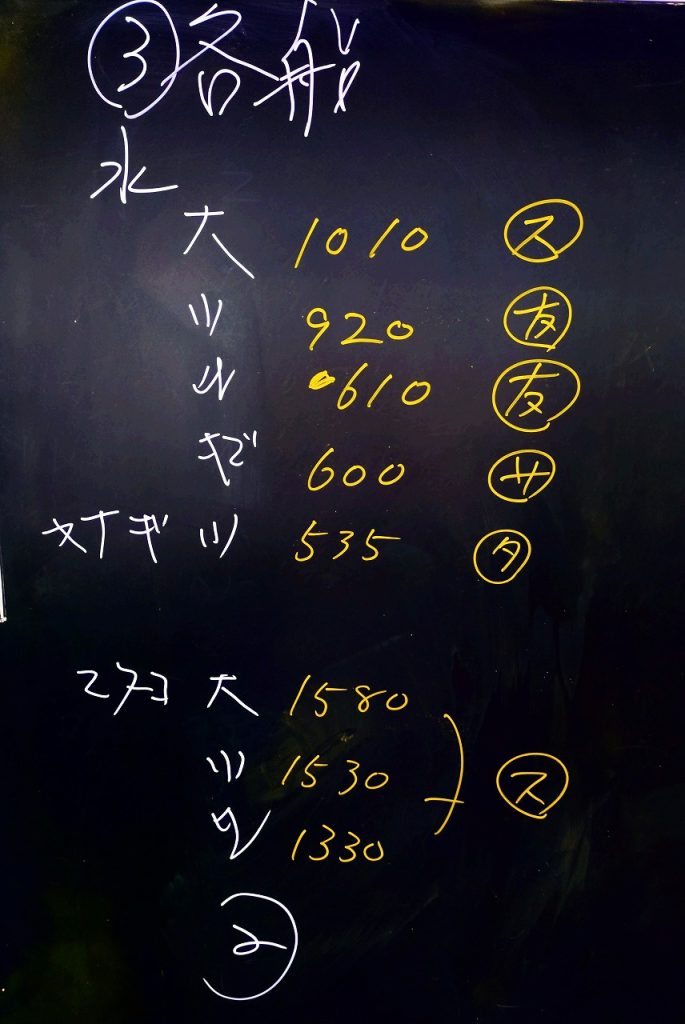 ③各船
水
大 1010 ㋜
ツ 920 友
小 610 友
キズ 600 ㋚
オナギ ツ 535 ㋟
マダコ 大 1580
ツ 1530 ㋜
1330
②